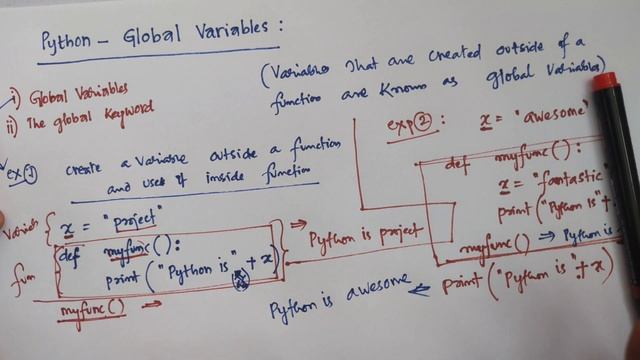 Python - Global Variables :
(Variables that are created outside of a
function are known as global variables)
i) Global Variables
ii) The global keyword
ex① create a variable outside a function
and use it inside function
x = "project"
def myfunc():
print("Python is" + x)
myfunc() ⇒
⇒ Python is project
fun
exp② : x = "awesome"
def myfunc():
x = "fantastic"
print("Python is" +
myfunc() ⇒ Python is
print("Python is" + x)
Python is awesome ←